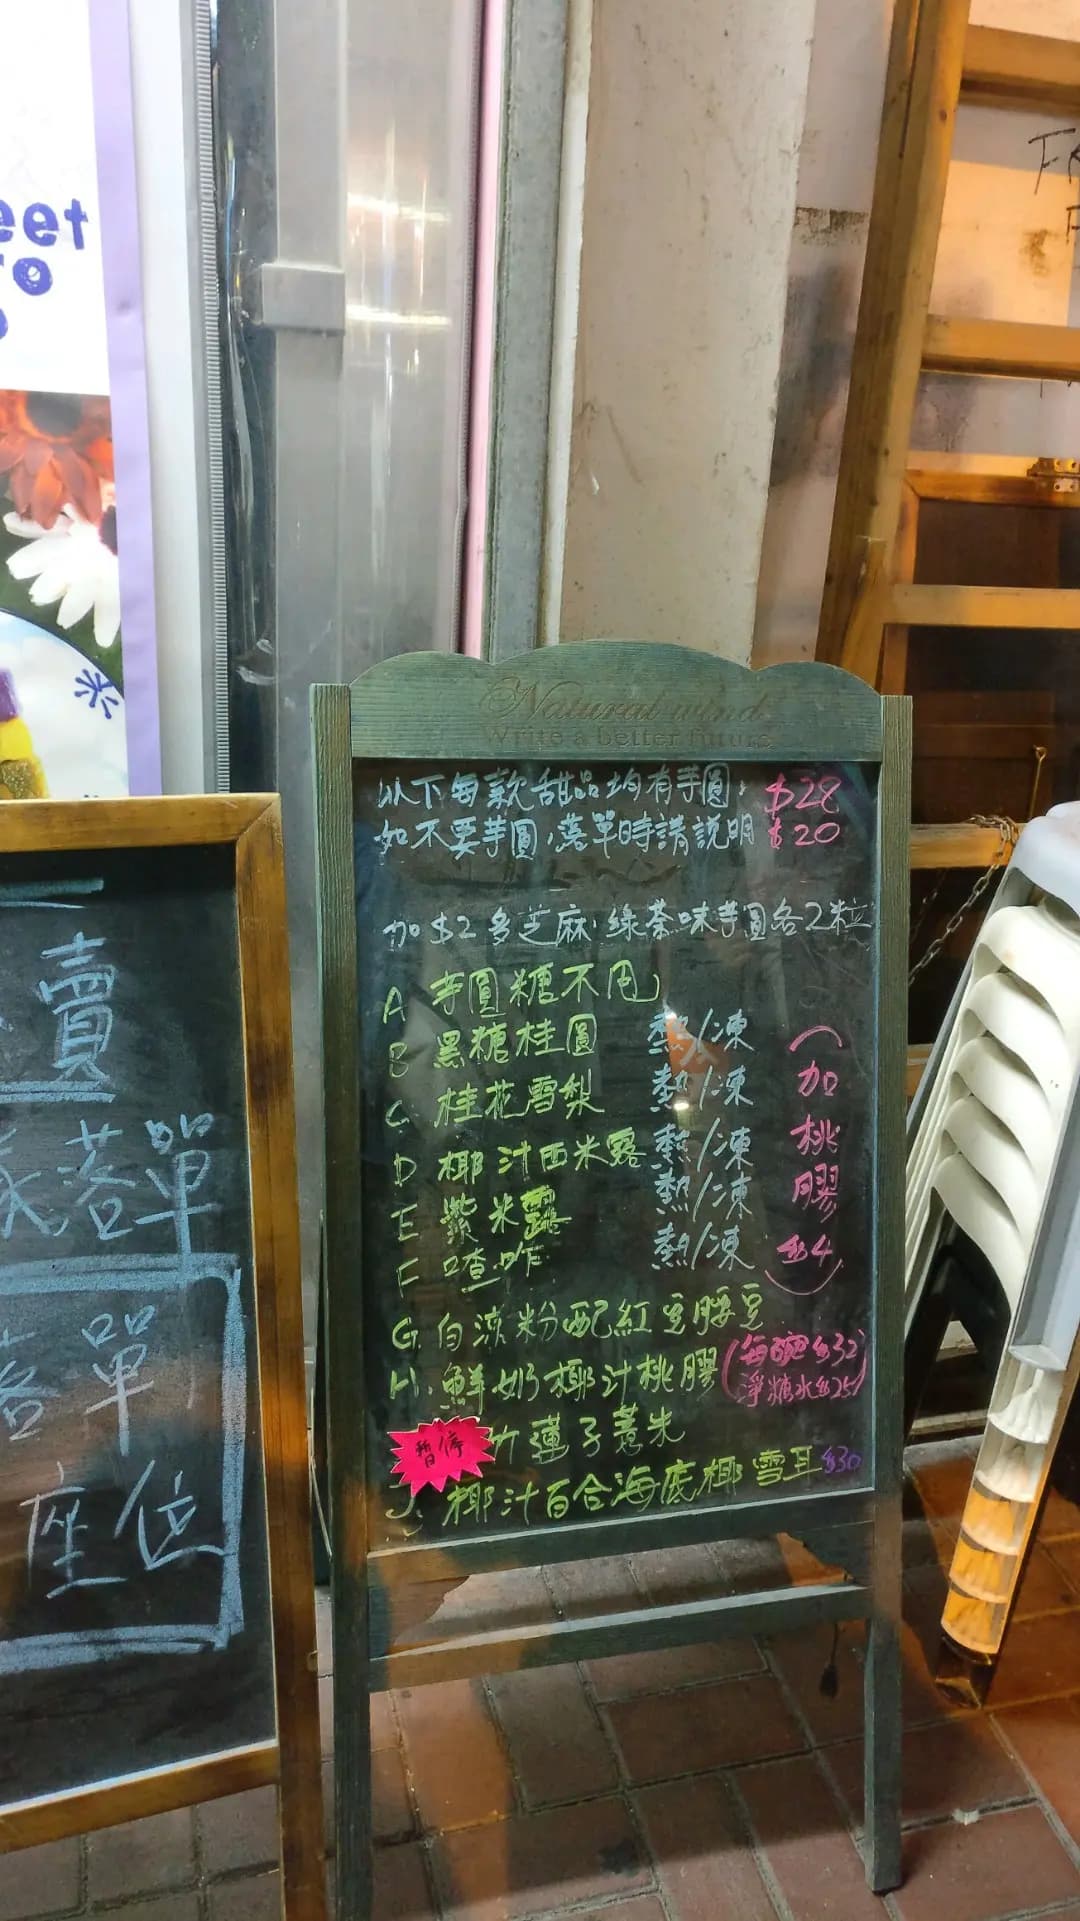 eet
ro
o
Natural wind
Write a better future
以下每款甜品均有芋圓, $28
如不要芋圓,落單時請說明 $20
加$2多芝麻、綠茶味芋圓各2粒
A 芋圓糖不甩
B 黑糖桂圓 熱/凍
C 桂花雪梨 熱/凍
D 椰汁西米露 熱/凍
E 紫米露 熱/凍
F 喳咋 熱/凍
(加桃膠$4)
G 白涼粉配紅豆腰豆
H. 鮮奶椰汁桃膠 (每碗$32
淨糖水$25)
暫停 蓮子薏米
J. 椰汁百合海底椰雪耳 $30
賣
落單
落單
座位